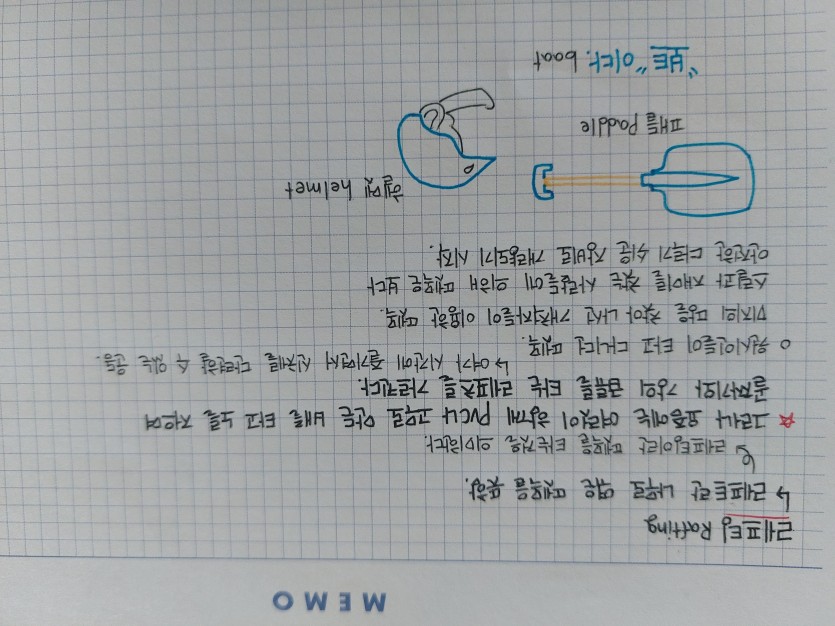 MEMO
레프팅 Rafting
↳ 레프트란 나무로 엮은 뗏목을 뜻함.
↳ 레프팅이란 뗏목을 타는것을 의미한다.
☆ 그러나 요즘에는 여럿이 함께 PVC나 고무로 만든 배를 타고 노를 저으며
골짜기와 강의 급류를 타는 레포츠를 가르킨다.
↳ 여가 시간에 즐기면서 신체를 단련할 수 있는 운동.
○ 원시인들이 타고 다니던 뗏목.
미지의 땅을 찾아 나선 개척자들이 이용한 뗏목.
스릴과 재미를 찾는 사람들에 의해 뗏목은 보다
안전한 다루기 쉬운 장비로 개량되기 시작.
패들 Paddle
헬멧 helmet
"보트" 이다. boat